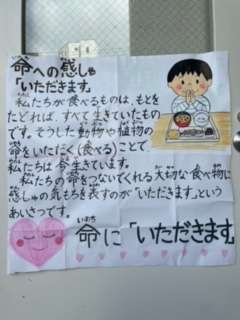 命への感しゃ
「いただきます」
私たちが食べるものは、もとを
たどれば、すべて生きていたもの
です。そうした動物や植物の
命をいただく(食べる)ことで
私たちは今生きています。
私たちの命をつないでくれる大切な食べ物に
感しゃの気もちを表すのが「いただきます」という
あいさつです。
命に「いただきます」